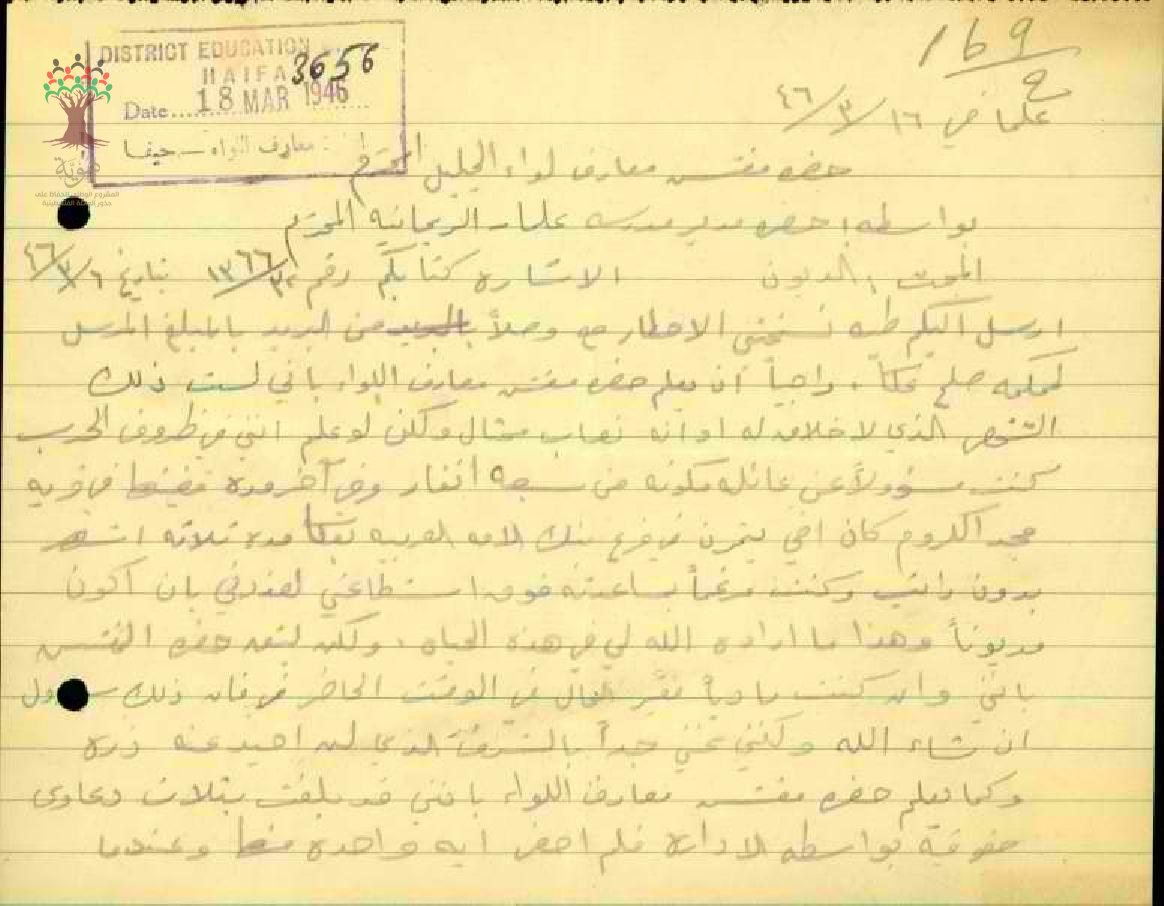 DISTRICT EDUCATION
HAIFA 3656
Date.... 18 MAR 1946
معارف اللواء – حيفا
هُويّة
المشروع الوطني للحفاظ على
جذور العائلة الفلسطينية
١٦٩
ع
علما في ١٦/٣/٤٦
حضرة مفتش معارف لواء الجليل المحترم
بواسطة: حضرة مدير مدرسة علما – الريحانية المحترم
المبحث: الديون الاشارة كتابكم رقم بتاريخ ٦/٣/٤٦
ارسل اليكم طيه نسختي الاخطار مع وصلاً بالبريد من البريد بالمبلغ المرسل
لمحكمة صلح عكا، راجياً أن يعلم حضرة مفتش معارف اللواء باني لست ذلك
الشخص الذي لا خلاق له او انه نصاب محتال ولكن لو علم انني في ظروف الحرب
كنت مسؤولاً عن عائلة مكونة من سبعة أنفار وفي آخر مدة قضيتها في قرية
مجد الكروم كان اخي يتمرن في فرع بنك الامة العربية بعكا مدة ثلاثة اشهر
بدون راتب وكنت مرغماً بمساعدته فوق استطاعتي لعذرني بان اكون
مديوناً وهذا ما اراده الله لي في هذه الحياة، ولكن ليثق حضرة المفتش
بانني وان كنت مادياً فقير الحال في الوقت الحاضر فان ذلك سيزول
ان شاء الله ولكنني غني جداً بالشرف الذي لن احيد عنه ذرة
وكما يعلم حضرة مفتش معارف اللواء بانني قد بلغت بثلاث دعاوى
حقوقية بواسطة الادارة فلم اخف اية واحدة منها وعندما